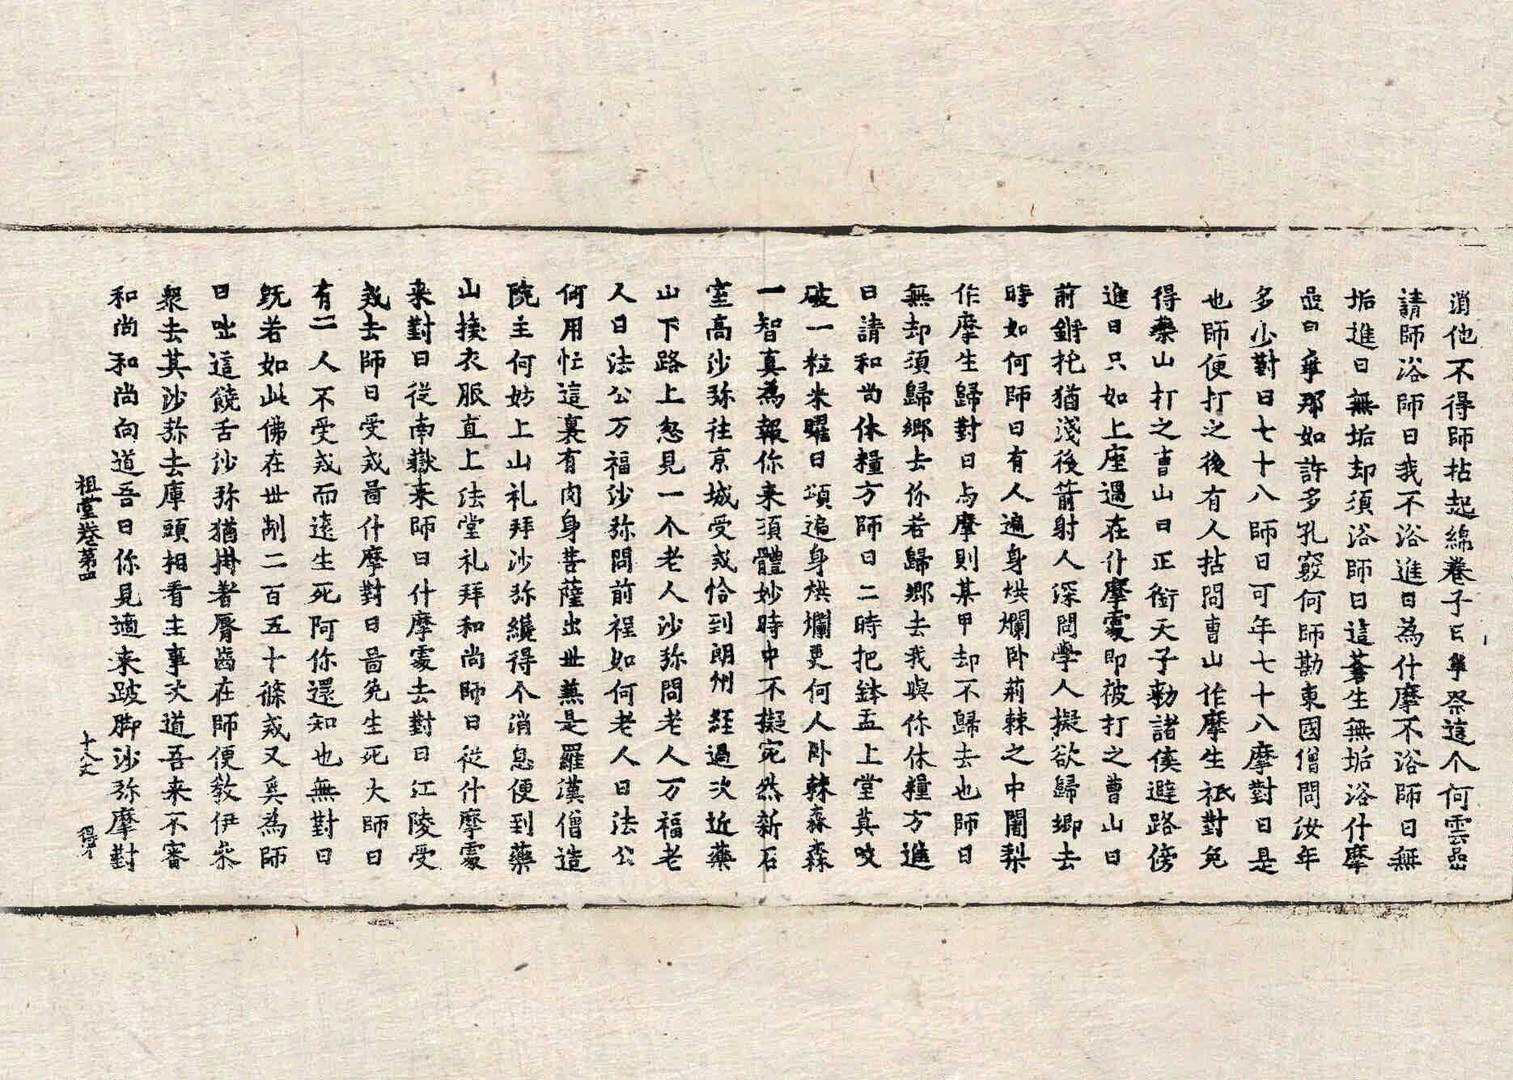 消他不得師拈起綿卷子曰舉祭這个何雲嵒
請師浴師曰我不浴進曰為什摩不浴師曰無
垢進曰無垢却須浴師曰這蒼生無垢浴什摩
嵒曰爭那如許多孔竅何師勘東國僧問汝年
多少對曰七十八師曰可年七十八摩對曰是
也師便打之後有人拈問曹山作摩生祇對免
得藥山打之曹山曰正銜天子勅諸侯避路傍
進曰只如上座過在什摩處即被打之曹山曰
前鏘托猶淺後箭射人深問學人擬欲歸鄉去
時如何師曰有人遍身烘爛卧荊棘之中闍梨
作摩生歸對曰与摩則某甲却不歸去也師曰
無却須歸鄉去你若歸鄉去我與你休糧方進
曰請和尚休糧方師曰二時把鉢盂上堂莫咬
破一粒米曜曰頌遍身烘爛更何人卧棘森森
一智真為報你来須體妙時中不擬宛然新石
室高沙弥往京城受戒恰到朗州經過次近藥
山下路上忽見一个老人沙弥問老人万福老
人曰法公万福沙弥問前程如何老人曰法公
何用忙這裏有肉身菩薩出世兼是羅漢僧造
院主何妨上山礼拜沙弥纔得个消息便到藥
山換衣服直上法堂礼拜和尚師曰從什摩處
来對曰從南嶽来師曰什摩處去對曰江陵受
戒去師曰受戒啚什摩對曰啚免生死大師曰
有一人不受戒而遠生死阿你還知也無對曰
既若如此佛在世制二百五十條戒又奚為師
曰咄這饒舌沙弥猶掛著脣齒在師便教伊參
衆去其沙弥去庫頭相看主事次道吾来不審
和尚和尚向道吾曰你見適来跛脚沙弥摩對
祖堂卷第四 十八丈